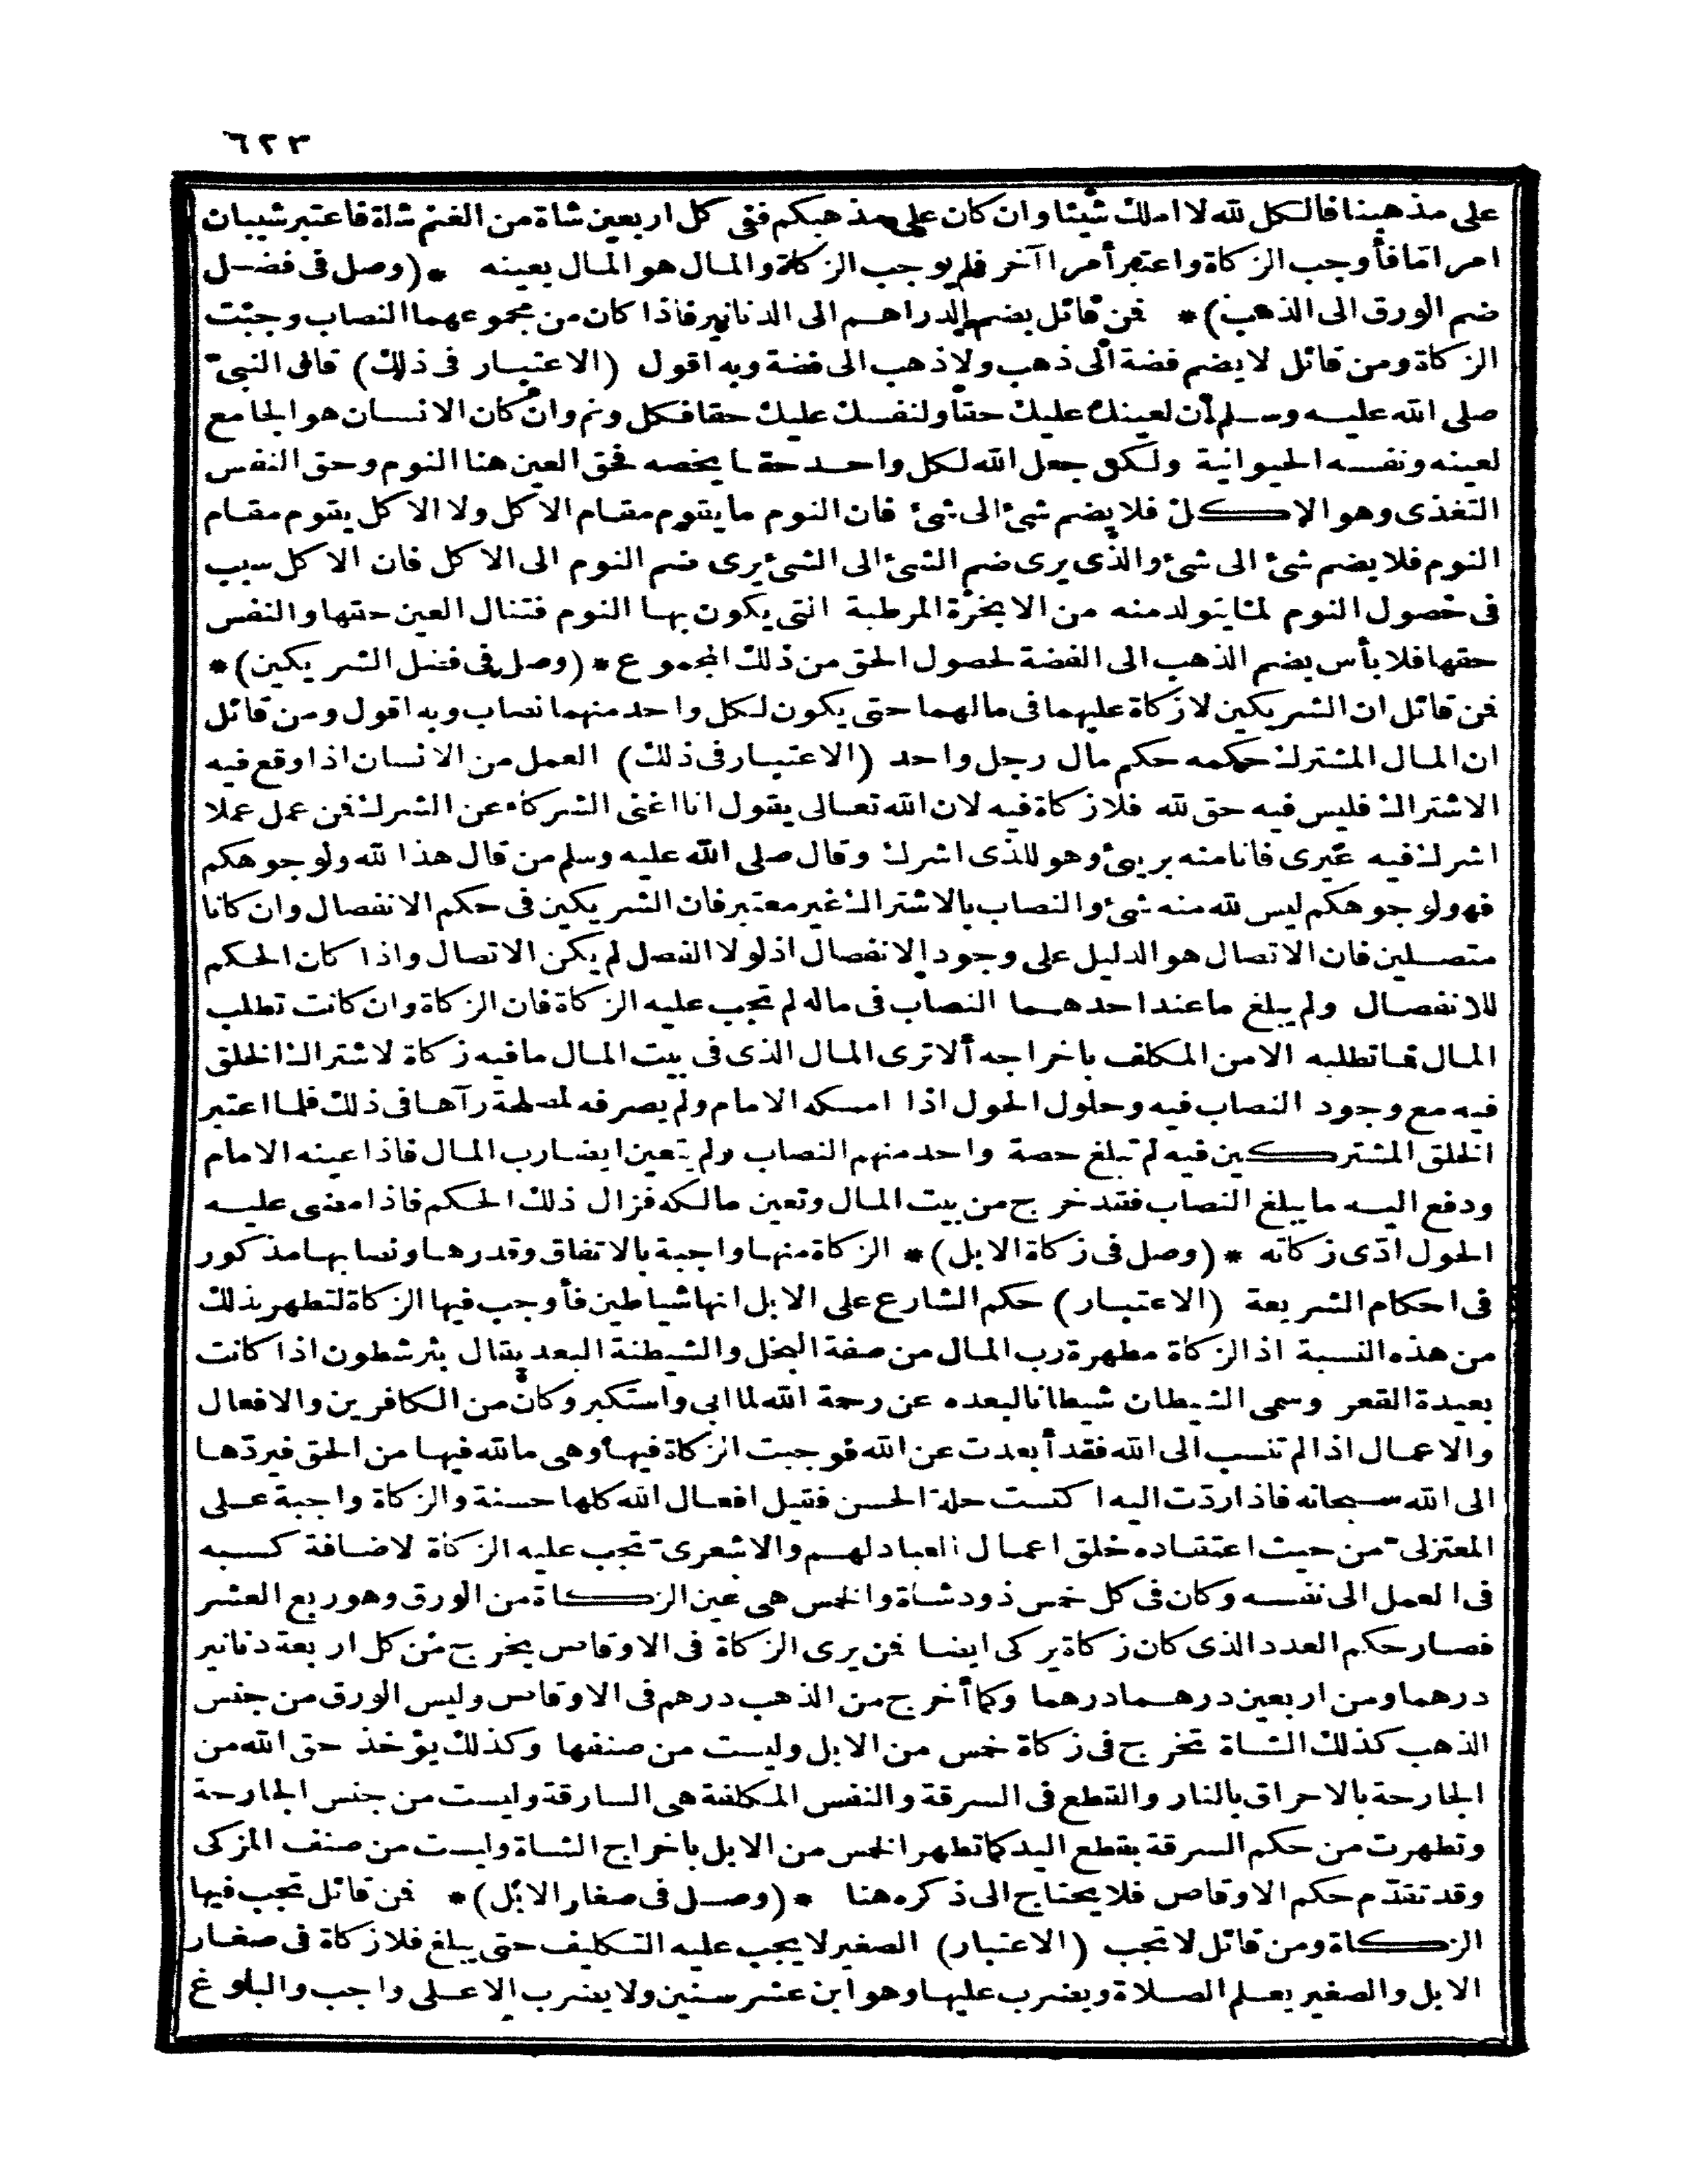 ٦٢٣
على مذهبنا فالكل لله لا املك شيئا وان كان على مذهبكم ففى كل اربعين شاة من الغنم شاة فاعتبر شيبان
امراما فأوجب الزكاة واعتبر أمرا آخر فلم يوجب الزكاة والمال هو المال بعينه * (وصل فى فضل
ضم الورق الى الذهب) * فمن قائل بضم الدراهم الى الدنانير فاذا كان من مجموعهما النصاب وجبت
الزكاة ومن قائل لا يضم فضة الى ذهب ولا ذهب الى فضة وبه اقول (الاعتبار فى ذلك) قال النبىّ
صلى الله عليه وسلم أن لعينك عليك حقا ولنفسك عليك حقا فكل ونم وان كان الانسان هو الجامع
لعينه ونفسه الحيوانية ولكن جعل الله لكل واحد حقا يخصه فحق العين هنا النوم وحق النفس
التغذى وهو الاكل فلا يضم شئ الى شئ فان النوم ما يقوم مقام الاكل ولا الاكل يقوم مقام
النوم فلا يضم شئ الى شئ والذى يرى ضم الشئ الى الشئ يرى ضم النوم الى الاكل فان الاكل سبب
فى حصول النوم لما يتولد منه من الابخرة المرطبة التى يكون بها النوم فتنال العين حقها والنفس
حقها فلا بأس بضم الذهب الى الفضة لحصول الحق من ذلك المجموع * (وصل فى فضل الشريكين) *
فمن قائل ان الشريكين لا زكاة عليهما فى مالهما حتى يكون لكل واحد منهما نصاب وبه اقول ومن قائل
ان المال المشترك حكمه حكم مال رجل واحد (الاعتبار فى ذلك) العمل من الانسان اذا وقع فيه
الاشتراك فليس فيه حق لله فلا زكاة فيه لان الله تعالى يقول انا اغنى الشركاء عن الشرك فمن عمل عملا
اشرك فيه غيرى فانا منه بريئ وهو للذى اشرك وقال صلى الله عليه وسلم من قال هذا لله ولوجوهكم
فهو لوجوهكم ليس لله منه شئ والنصاب بالاشتراك غير معتبر فان الشريكين فى حكم الانفصال وان كانا
متصلين فان الاتصال هو الدليل على وجود الانفصال اذ لولا الفصل لم يكن الاتصال واذا كان الحكم
للانفصال ولم يبلغ ما عند احدهما النصاب فى ماله لم تجب عليه الزكاة فان الزكاة وان كانت تطلب
المال فما تطلبه الا من المكلف باخراجه ألا ترى المال الذى فى بيت المال ما فيه زكاة لاشتراك الخلق
فيه مع وجود النصاب فيه وحلول الحول اذا امسكه الامام ولم يصرفه لمصلحة رآها فى ذلك فلما اعتبر
الخلق المشتركين فيه لم تبلغ حصة واحد منهم النصاب ولم يتعين ايضا رب المال فاذا عينه الامام
ودفع اليه ما يبلغ النصاب فقد خرج من بيت المال وتعين مالكه فزال ذلك الحكم فاذا مضى عليه
الحول ادّى زكاته * (وصل فى زكاة الابل) * الزكاة منها واجبة بالاتفاق وقدرها ونصابها مذكور
فى احكام الشريعة (الاعتبار) حكم الشارع على الابل انها شياطين فأوجب فيها الزكاة لتطهر بذلك
من هذه النسبة اذ الزكاة مطهرة رب المال من صفة البخل والشيطنة البعد يقال بئر شطون اذا كانت
بعيدة القعر وسمى الشيطان شيطانا لبعده عن رحمة الله لما ابى واستكبر وكان من الكافرين والافعال
والاعمال اذا لم تنسب الى الله فقد أبعدت عن الله فوجبت الزكاة فيها وهى ما لله فيها من الحق فيردّها
الى الله سبحانه فاذا ردّت اليه اكتست حلة الحسن فقيل افعال الله كلها حسنة والزكاة واجبة على
المعتزلىّ من حيث اعتقاده خلق اعمال العباد لهم والاشعرىّ تجب عليه الزكاة لاضافة كسبه
فى العمل الى نفسه وكان فى كل خمس ذود شاة والخمس هى عين الزكاة من الورق وهو ربع العشر
فصار حكم العدد الذى كان زكاة يزكى ايضا فمن يرى الزكاة فى الاوقاص يخرج من كل اربعة دنانير
درهما ومن اربعين درهما درهما وكما أخرج من الذهب درهم فى الاوقاص وليس الورق من جنس
الذهب كذلك الشاة تخرج فى زكاة خمس من الابل وليست من صنفها وكذلك يؤخذ حق الله من
الجارحة بالاحراق بالنار والقطع فى السرقة والنفس المكلفة هى السارقة وليست من جنس الجارحة
وتطهرت من حكم السرقة بقطع اليد كما تطهر الخمس من الابل باخراج الشاة وليست من صنف المزكى
وقد تقدّم حكم الاوقاص فلا يحتاج الى ذكره هنا * (وصل فى صغار الابل) * فمن قائل تجب فيها
الزكاة ومن قائل لا تجب (الاعتبار) الصغير لا يجب عليه التكليف حتى يبلغ فلا زكاة فى صغار
الابل والصغير يعلم الصلاة ويضرب عليها وهو ابن عشر سنين ولا يضرب الا على واجب والبلوغ